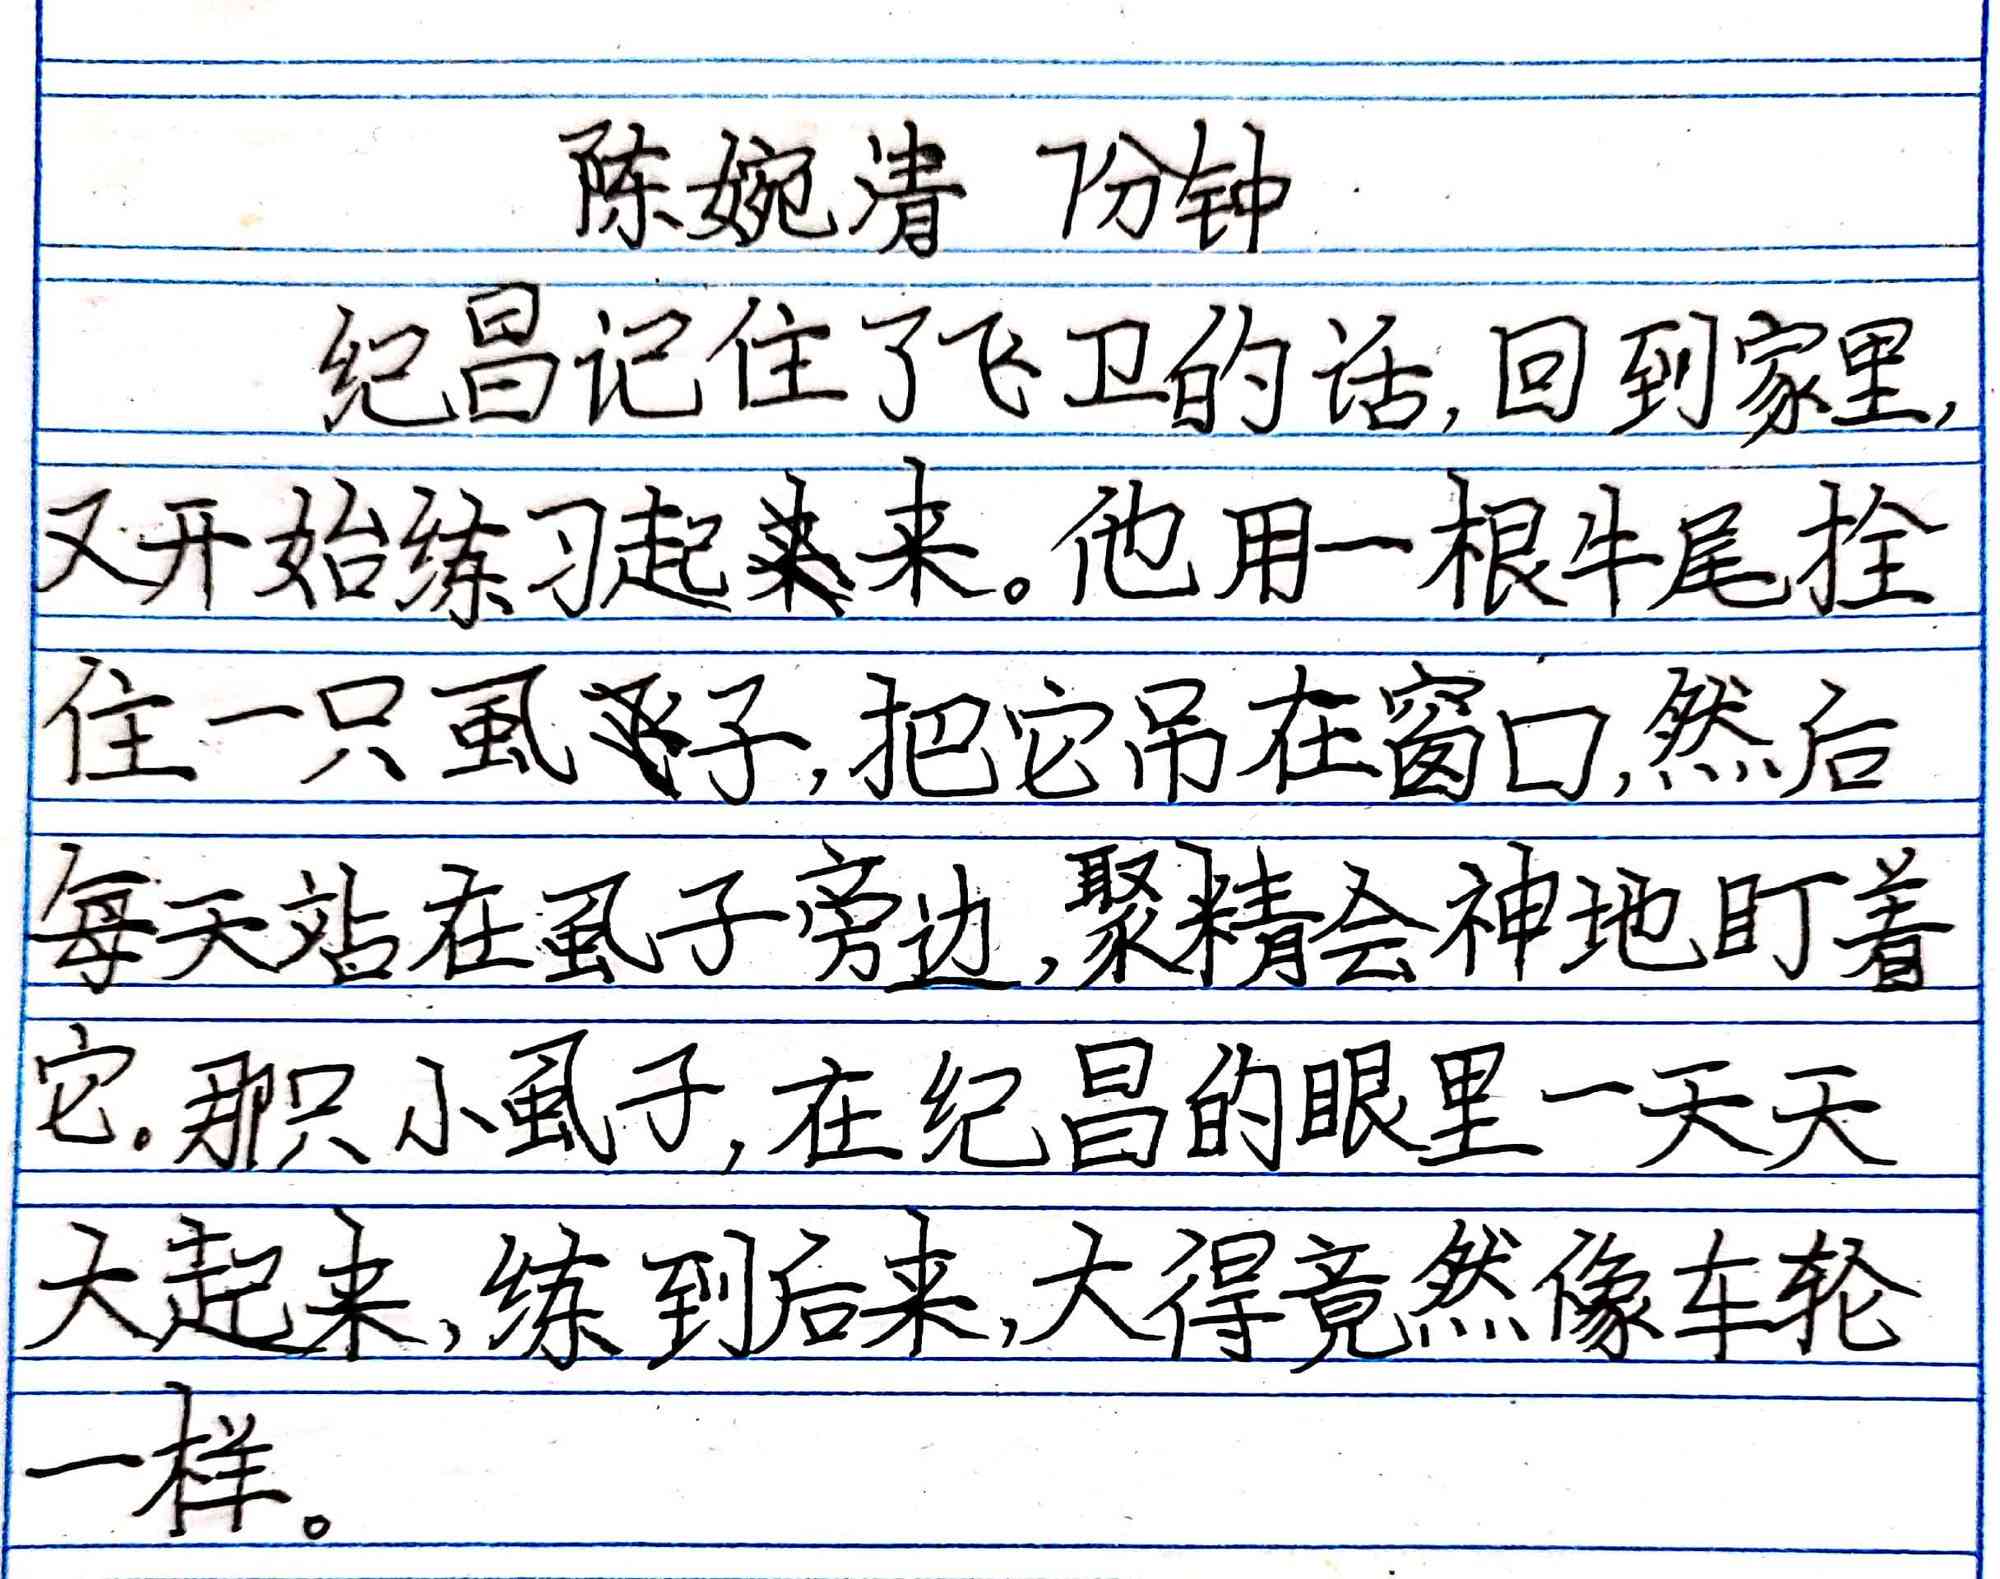 陈婉清 7分钟
纪昌记住了飞卫的话,回到家里,
又开始练习起来。他用一根牛尾拴
住一只虱子,把它吊在窗口,然后
每天站在虱子旁边,聚精会神地盯着
它。那只小虱子,在纪昌的眼里一天天
大起来,练到后来,大得竟然像车轮
一样。